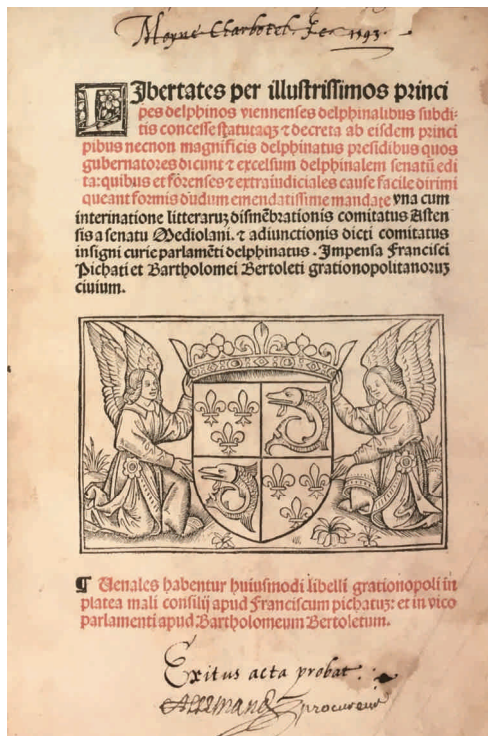 Libertates per illustrissimos princi
pes delphinos viennenses delphinalibus subdi-
tis concesse statutaqꝫ ⁊ decreta ab eisdem princi
pibus necnon magnificis delphinatus presidibus quos
gubernatores dicunt ⁊ excelsum delphinalem senatū edi
ta: quibus et fōrenses ⁊ extraiudiciales cause facile dirimi
queant formis dudum emendatissime mandate vna cum
interinatione litteraruꝫ dismēbrationis comitatus Asten
sis a senatu Mediolani. ⁊ adiunctionis dicti comitatus
insigni curie parlamēti delphinatus. Impensa Francisci
Pichati et Bartholomei Bertoleti grationopolitanoruꝫ
ciuium.
¶ Uenales habentur huiusmodi libelli grationopoli in
platea mali consilij apud Franciscum pichatuꝫ: et in vico
parlamenti apud Bartholomeum Bertoletum.
Exitus acta probat.
procureur